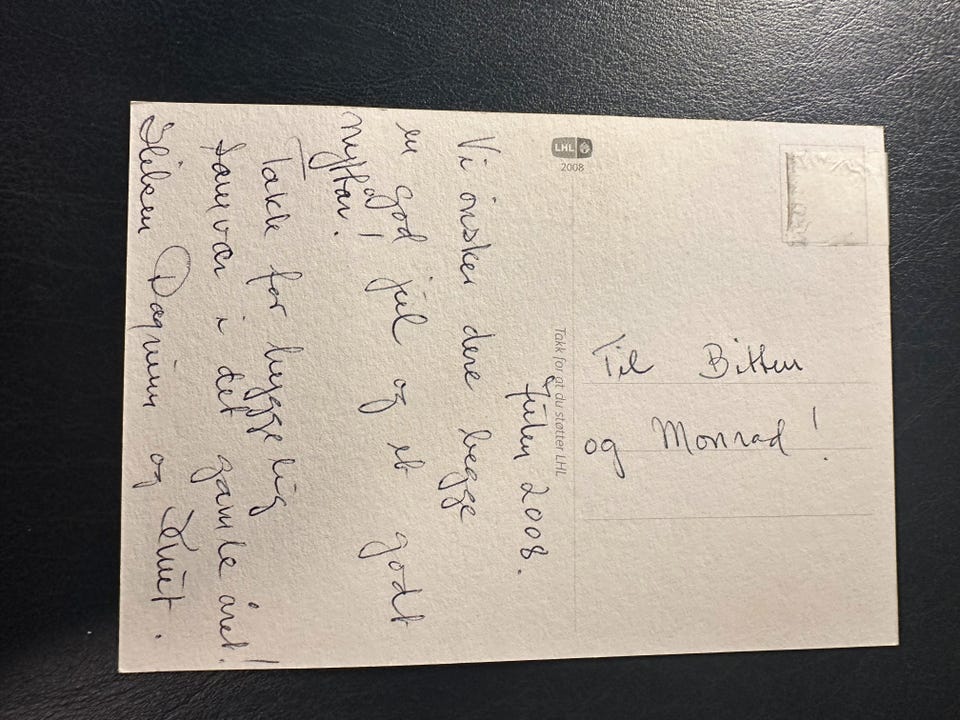 Julen 2008.
Vi ønsker dere begge
en god jul og et godt
nyttår!
Takk for hyggelig
samvær i det gamle året!
Hilsen Dagrunn og Knut.
LHL
2008
Takk for at du støtter LHL
Til Bitten
og Monrad!